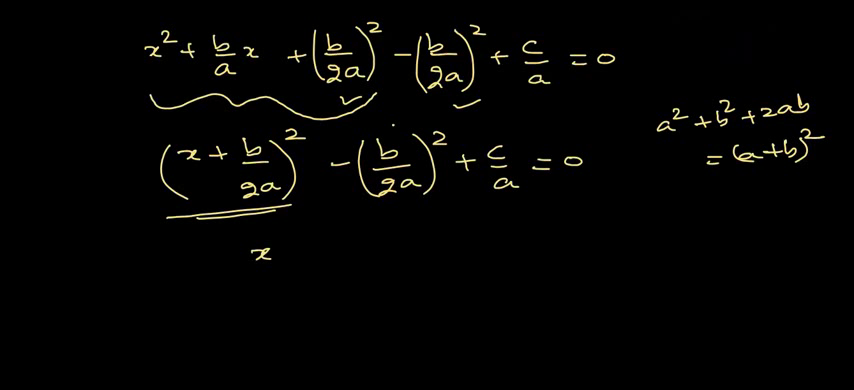 x² + b/a x + (b/2a)² - (b/2a)² + c/a = 0
(x + b/2a)² - (b/2a)² + c/a = 0
x
a² + b² + 2ab
= (a+b)²